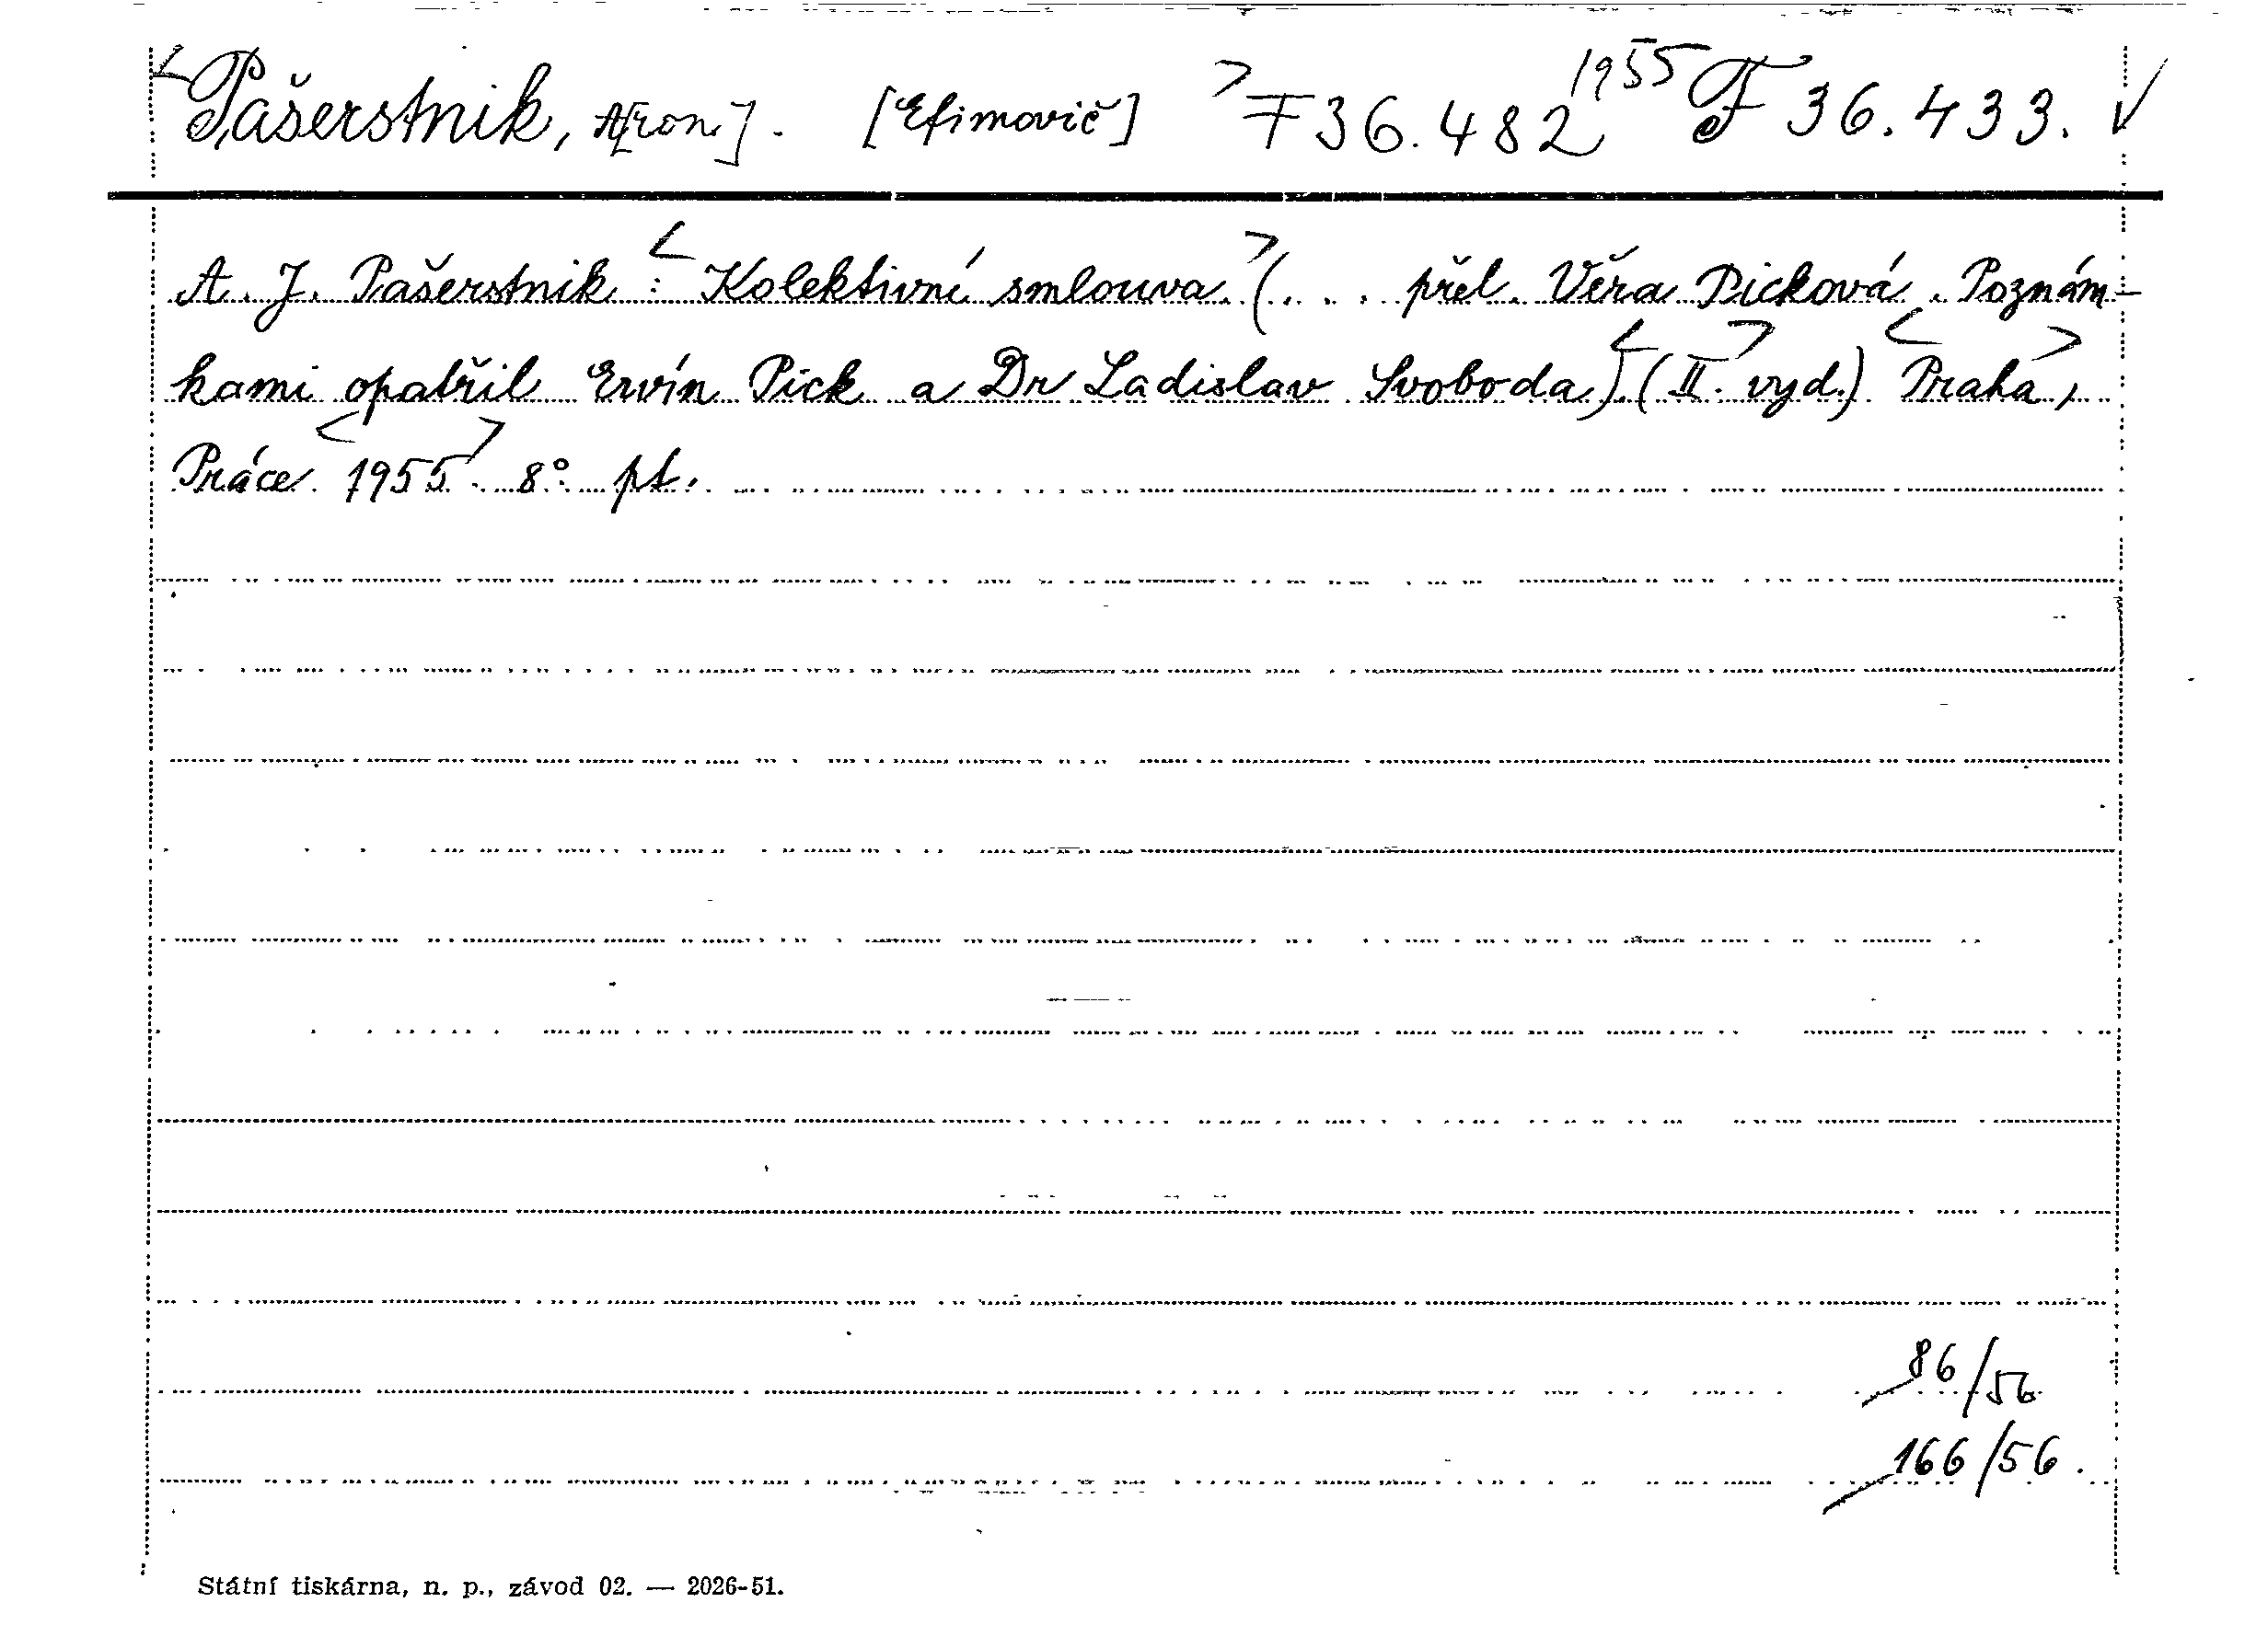 <Pašerstnik, A[ron]. [Efimovič] > F 36.482 1955 F 36.433. √
A. J. Pašerstnik : <Kolektivní smlouva.> (... přel. Věra Picková. Poznám-
kami opatřil Ervín Pick a Dr Ladislav Svoboda). <(II. vyd.)> <Praha>,
Práce <1955>. 8° pt.
86/56
166/56.
Státní tiskárna, n. p., závod 02. — 2026-51.